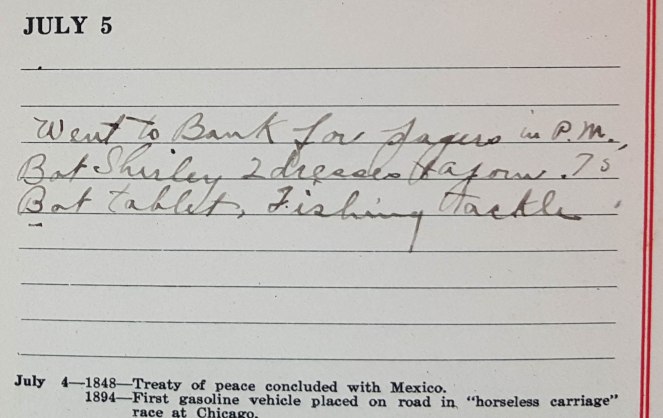 JULY 5
Went to Bank for in P.M.,
Bot Shirley 2 dresses & a
Bot tablet, Fishing tackle
July 4—1848—Treaty of peace concluded with Mexico.
1894—First gasoline vehicle placed on road in "horseless carriage"
race at Chicago.